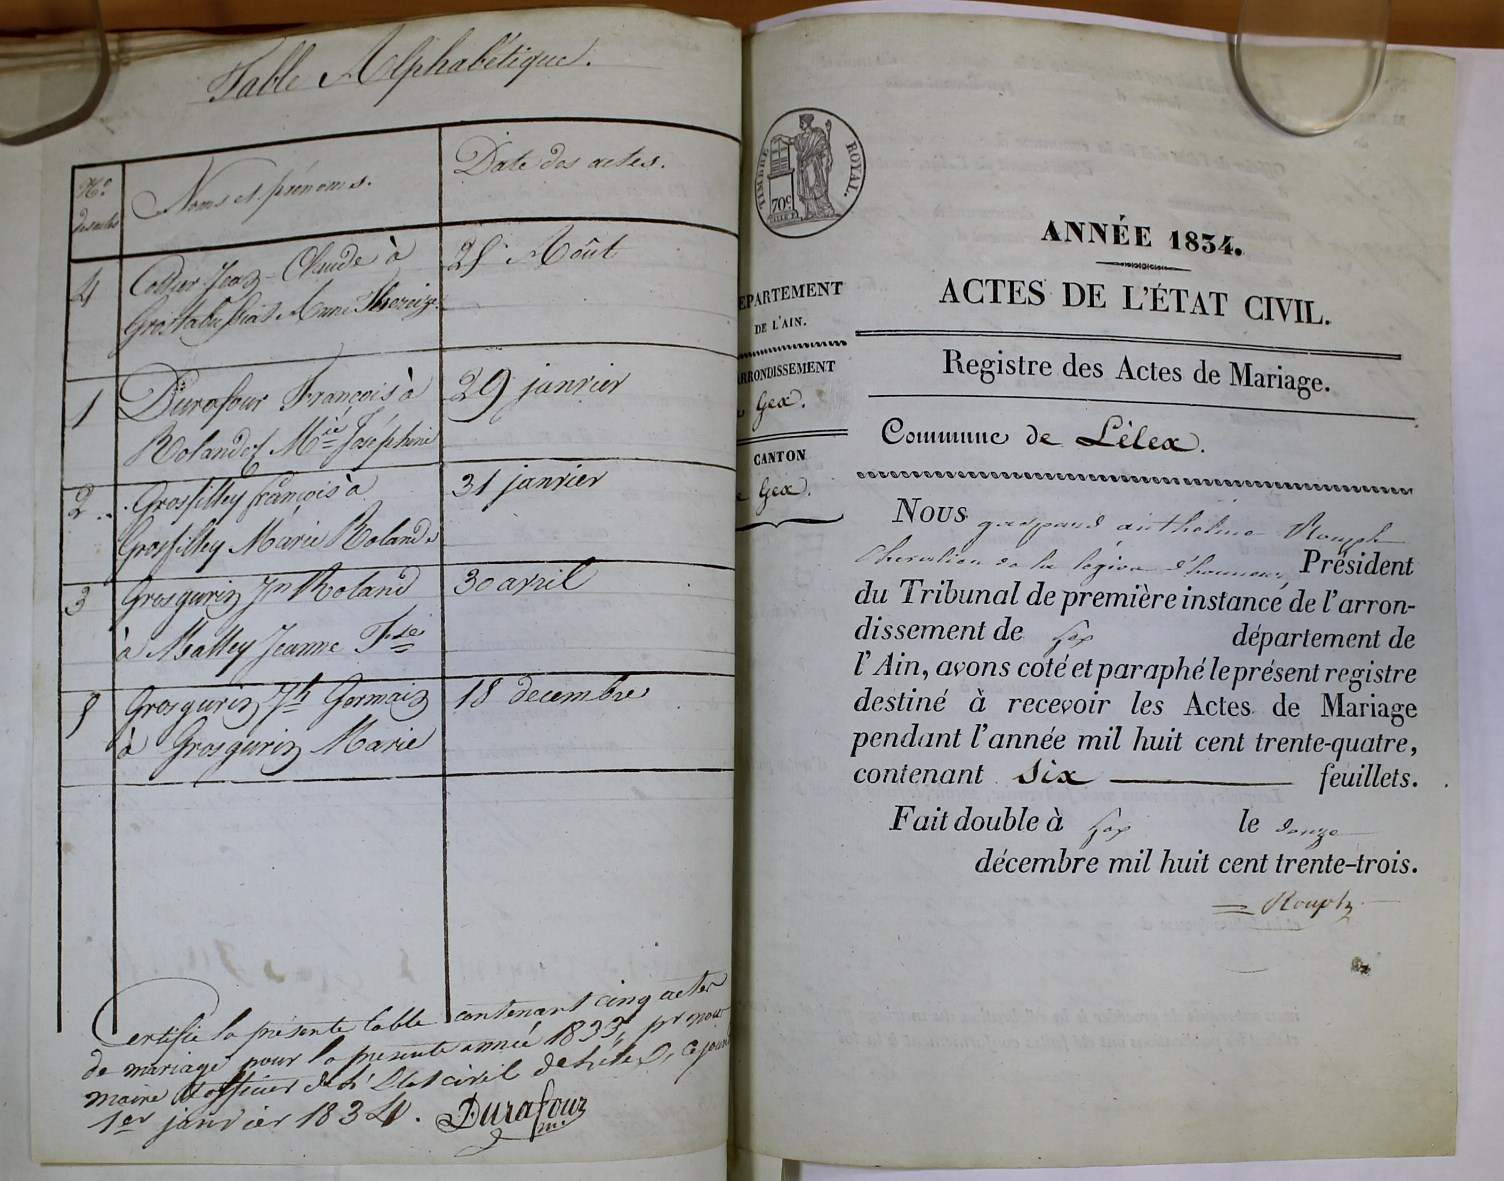 Table Alphabétique.
No
des actes
Noms et prénoms.
Date des actes.
4
Jean-Claude à
Anne
25 Août
1
Durafour François à
Rolandez Mie Joséphine
29 janvier
2
Grosfilley françois à
Grosfilley Marie Roland
31 janvier
3
Grosgurin Jn Roland
à Malley Jeanne Fse
30 avril
5
Grosgurin Jh Germain
à Grosgurin Marie
18 decembre
Certifié la présente table contenant cinq actes
de mariage pour la presente année 1833, pr nous
maire et officier de l'Etat civil de Lélex, ce jourd
1er janvier 1834. Durafour
TIMBRE ROYAL.
70c
DÉPARTEMENT
DE L'AIN.
ARRONDISSEMENT
Gex.
CANTON
Gex.
ANNÉE 1834.
ACTES DE L'ÉTAT CIVIL.
Registre des Actes de Mariage.
Commune de Lélex.
Nous gaspard anthelme Rouph
chevalier de la légion d'honneur, Président
du Tribunal de première instance de l'arron-
dissement de Gex département de
l'Ain, avons coté et paraphé le présent registre
destiné à recevoir les Actes de Mariage
pendant l'année mil huit cent trente-quatre,
contenant six feuillets.
Fait double à Gex le douze
décembre mil huit cent trente-trois.
Rouph